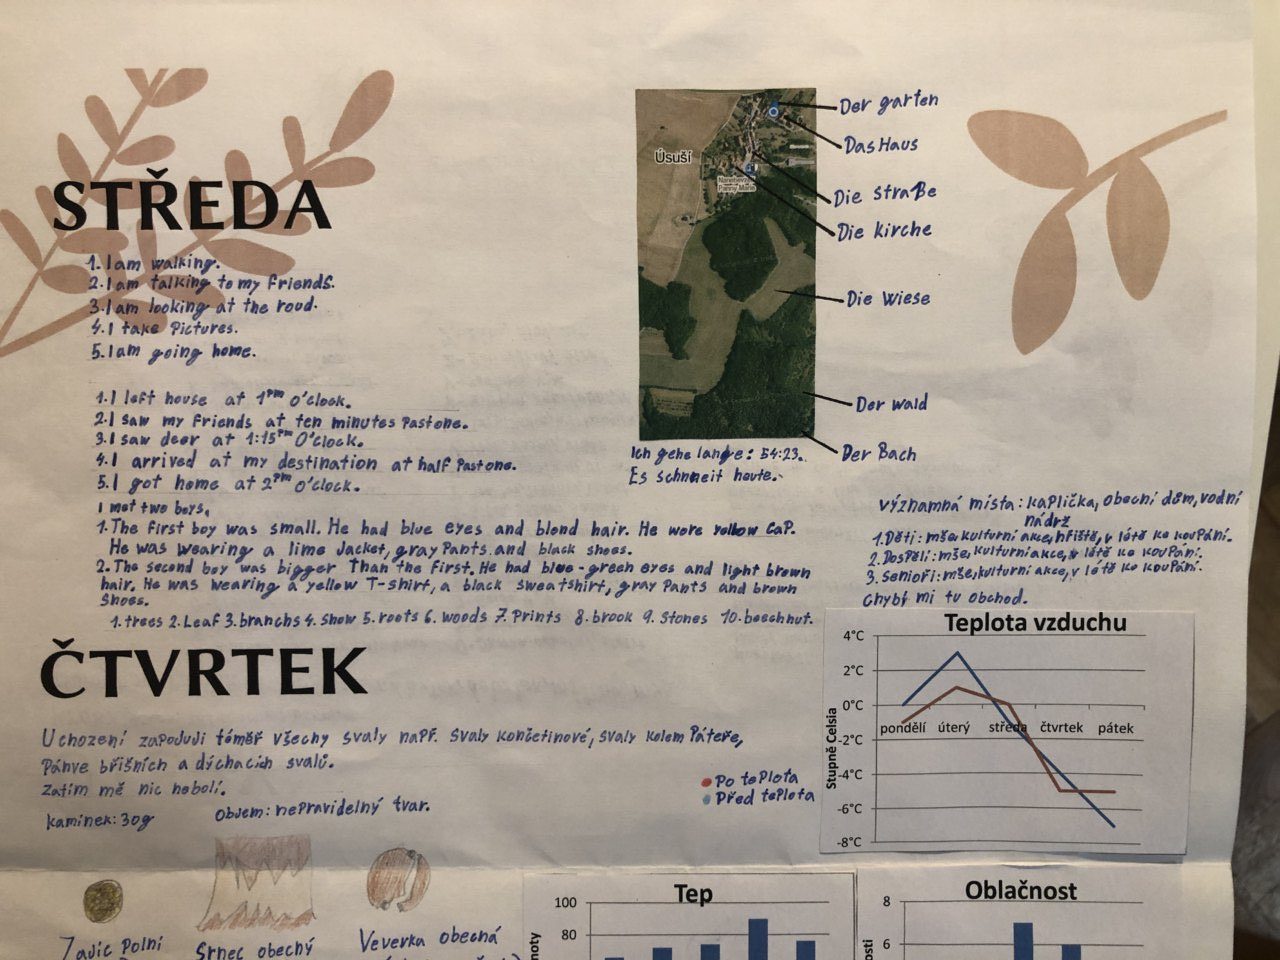 STŘEDA
1. I am walking.
2. I am talking to my friends.
3. I am looking at the roud.
4. I take Pictures.
5. I am going home.
1. I left house at 1pm O'clock.
2. I saw my friends at ten minutes Pastone.
3. I saw deer at 1:15pm O'clock.
4. I arrived at my destination at half Pastone.
5. I got home at 2pm O'clock.
I met two boys.
1. The first boy was small. He had blue eyes and blond hair. He wore yellow CaP.
He was wearing a lime Jacket, gray Pants and black shoes.
2. The second boy was bigger Than the first. He had blue-green eyes and light brown
hair. He was wearing a yellow T-shirt, a black sweatshirt, gray Pants and brown
shoes.
1. trees 2. Leaf 3. branchs 4. Snow 5. roots 6. woods 7. Prints 8. brook 9. Stones 10. beechnut.
Úsuší
Panny Marie
Der garten
Das Haus
Die straße
Die kirche
Die Wiese
Der wald
Der Bach
Ich gehe lange: 54:23.
Es schnneit heute.
významná místa: kaplička, obecní dům, vodní
nádrž
1. Děti: mše, kulturní akce, hřiště, v létě ko kouPání.
2. DosPělí: mše, kulturní akce, v létě ko kouPání.
3. Senioři: mše, kulturní akce, v létě ko kouPání.
Chybí mi tu obchod.
ČTVRTEK
Uchození zapojuji téměř všechy svaly např. Svaly končetinové, svaly kolem Páteře,
Pánve břišních a dýchacích svalů.
Zatím mě nic nebolí.
kamínek: 30g
Objem: nepravidelný tvar.
Po teplota
Před teplota
Teplota vzduchu
Stupně Celsia
4°C
2°C
0°C
-2°C
-4°C
-6°C
-8°C
pondělí úterý středa čtvrtek pátek
Zajíc Polní
Srnec obecný
Veverka obecná
Tep
100
80
Oblačnost
8
6